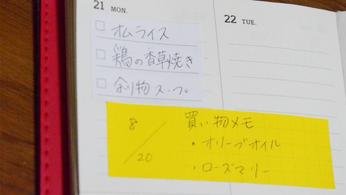 21 MON.
22 TUE.
オムライス
鶏の香草焼き
余り物スープ
8/20
買い物メモ
・オリーブオイル
・ローズマリー